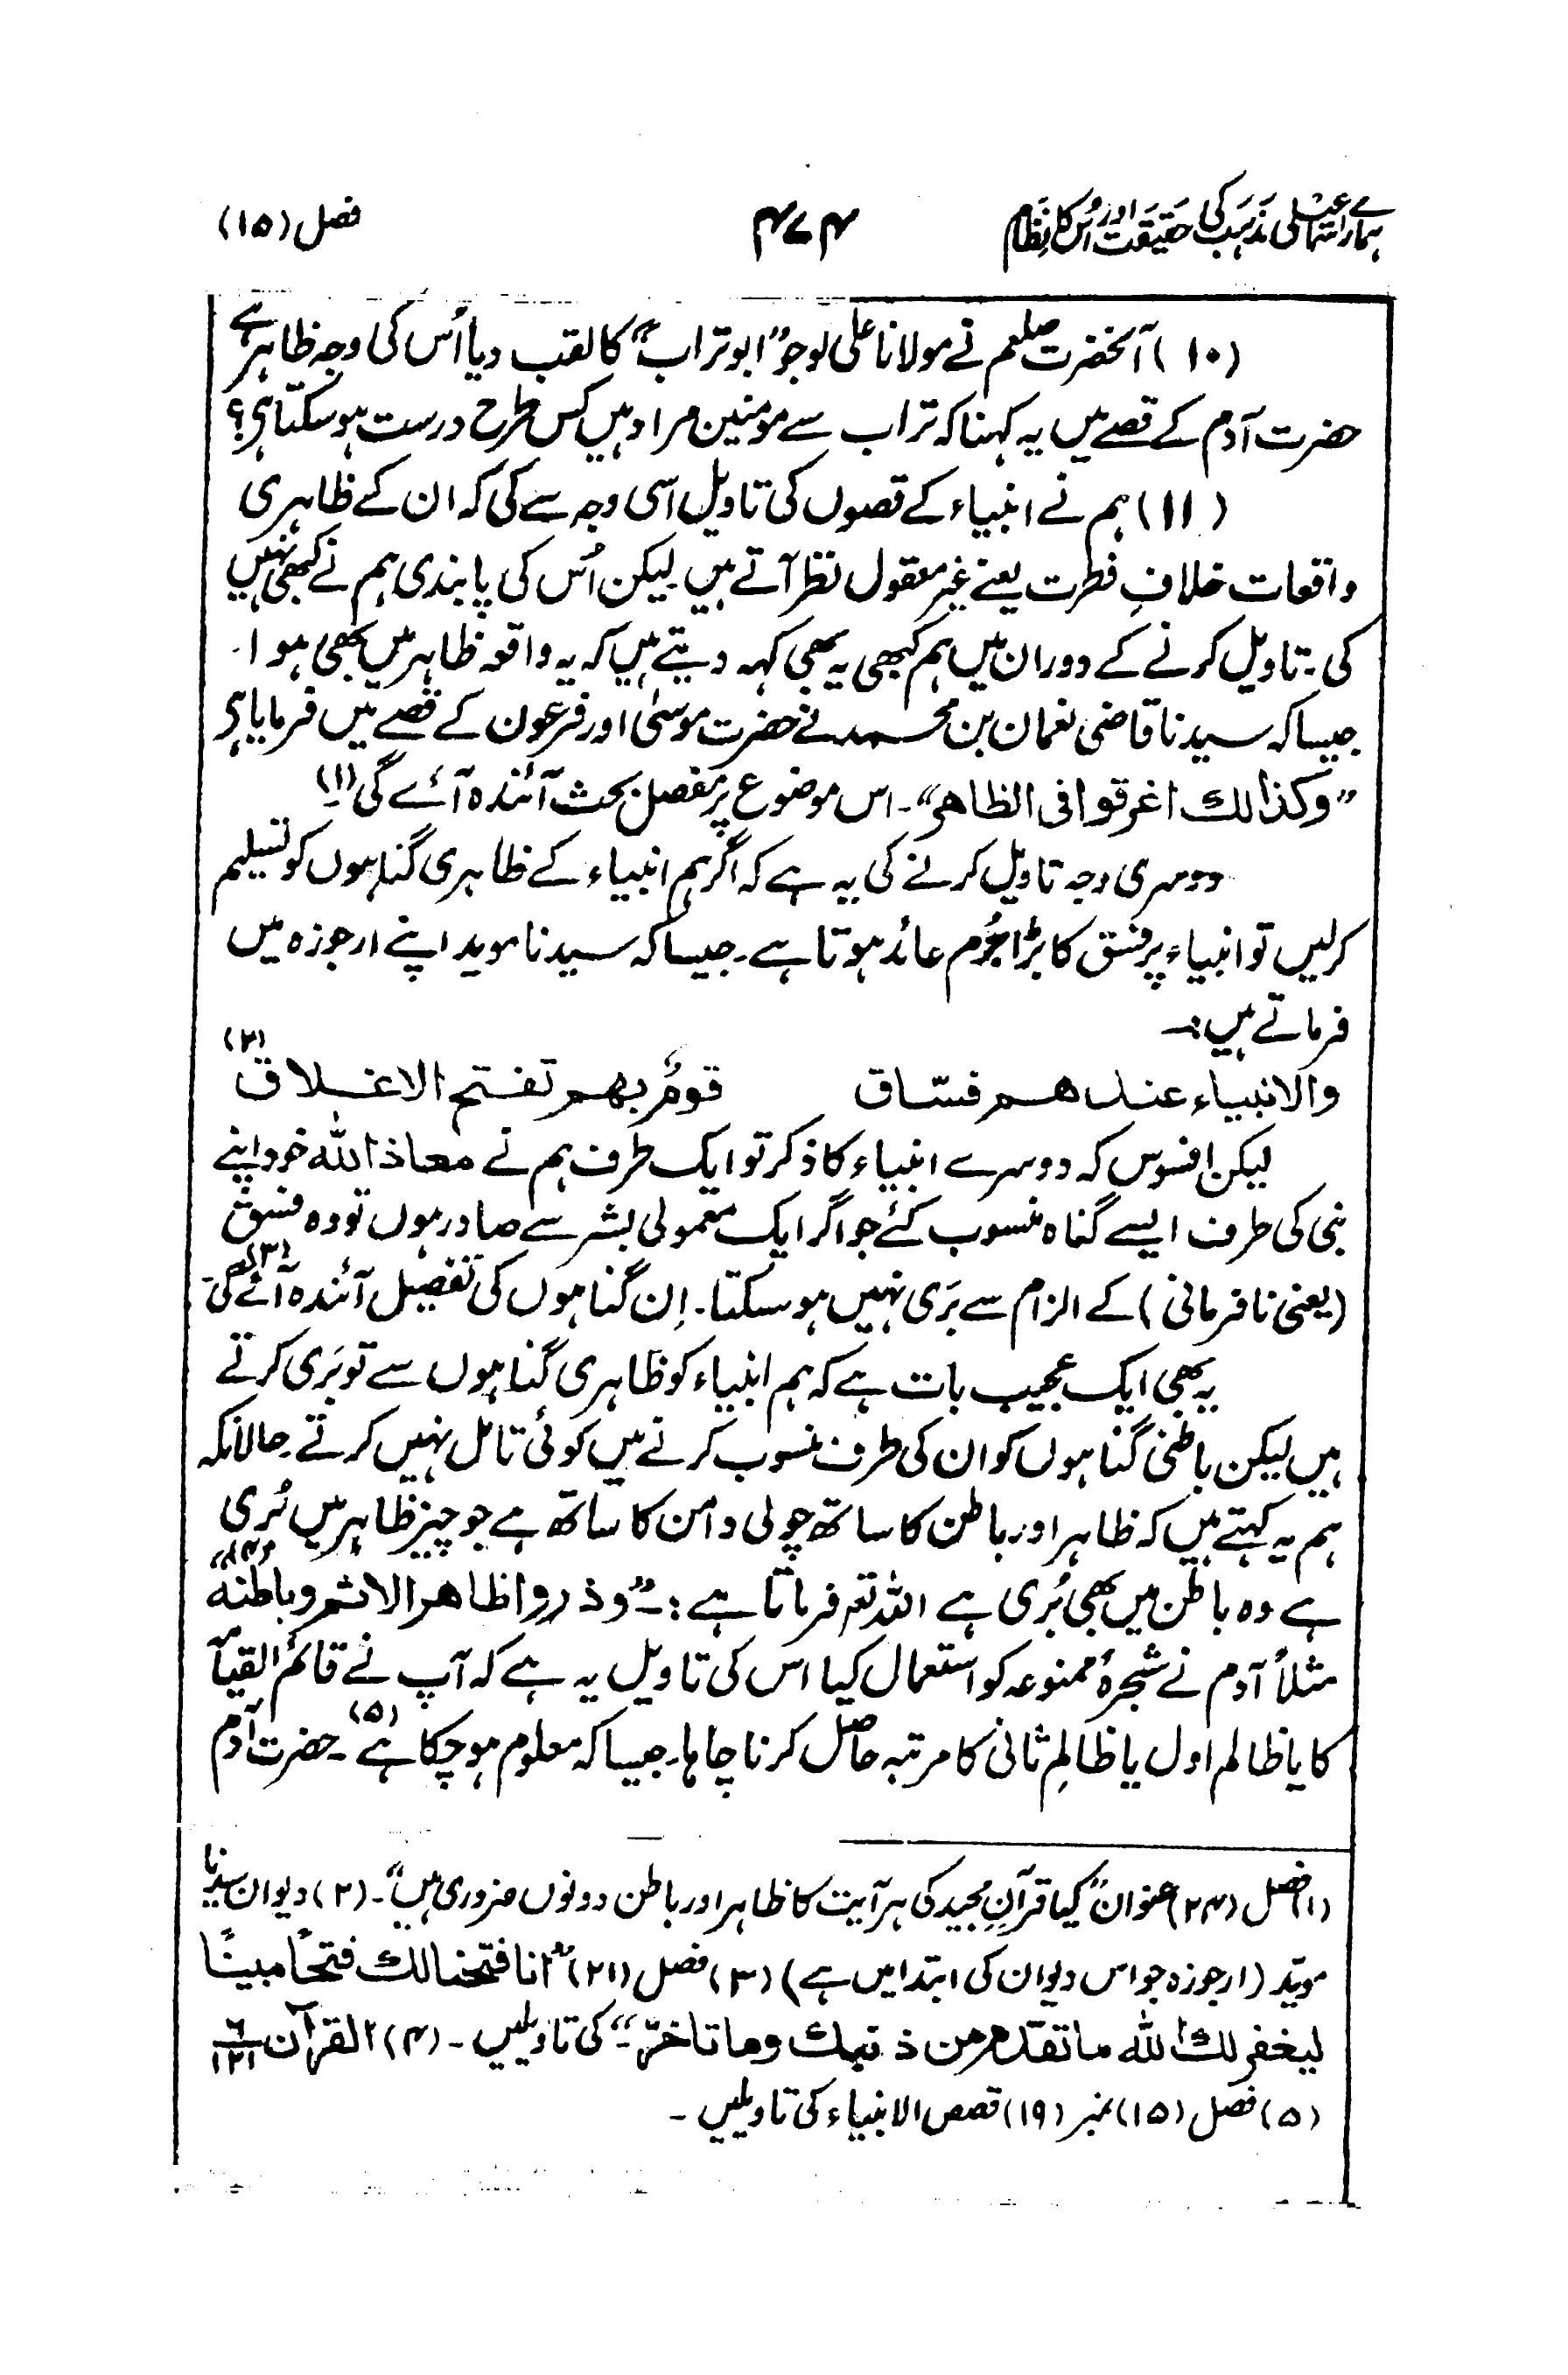 ہمارے اسماعیلی مذہب کی حقیقت اور اُس کا نظام ۴۷۴ فصل (۱۵)
(۱۰) آنحضرت صلعم نے مولانا علی کو جو ”ابو تراب“ کا لقب دیا اُس کی وجہ ظاہر ہے
حضرت آدم کے قصے میں یہ کہنا کہ تراب سے مومنین مراد ہیں کس طرح درست ہو سکتا ہی؟
(۱۱) ہم نے انبیاء کے قصوں کی تاویل اسی وجہ سے کی کہ ان کے ظاہری
واقعات خلافِ فطرت یعنے غیر معقول نظر آتے ہیں لیکن اُس کی پابندی ہم نے کبھی نہیں
کی۔ تاویل کرنے کے دوران میں ہم کبھی یہ بھی کہہ دیتے ہیں کہ یہ واقعہ ظاہر میں بھی ہوا۔
جیسا کہ سیدنا قاضی نعمان بن محمد نے حضرت موسیٰ اور فرعون کے قصے میں فرمایا ہی
”وکذالک اغرقوا فی الظاھر“۔ اس موضوع پر مفصل بحث آئندہ آئے گی (۱)
دوسری وجہ تاویل کرنے کی یہ ہے کہ اگر ہم انبیاء کے ظاہری گناہوں کو تسلیم
کرلیں تو انبیاء پر فسق کا بڑا جُرم عائد ہوتا ہے۔ جیسا کہ سیدنا موید اپنے ارجوزہ میں
فرماتے ہیں:۔
والانبیاء عندھم فسّاق قومٌ بھم تفتح الاغلاق (۲)
لیکن افسوس کہ دوسرے انبیاء کا ذکر تو ایک طرف ہم نے معاذ اللہ خود اپنے
نبی کی طرف ایسے گناہ منسوب کئے جو اگر ایک معمولی بشر سے صادر ہوں تو وہ فسق
(یعنی نافرمانی) کے الزام سے بَری نہیں ہو سکتا۔ اِن گناہوں کی تفصیل آئندہ آئے گی (۳)۔
یہ بھی ایک عجیب بات ہے کہ ہم انبیاء کو ظاہری گناہوں سے تو بَری کرتے
ہیں لیکن باطنی گناہوں کو ان کی طرف منسوب کرنے میں کوئی تامل نہیں کرتے۔ حالانکہ
ہم یہ کہتے ہیں کہ ظاہر اور باطن کا ساتھ چولی دامن کا ساتھ ہے جو چیز ظاہر میں بُری
ہے وہ باطن میں بھی بُری ہے اللہ تعہ فرماتا ہے:۔ ”وذروا ظاھر الاثم وباطنہ“ (۴)
مثلاً آدم نے شجرۂ ممنوعہ کو استعمال کیا اس کی تاویل یہ ہے کہ آپ نے قائم القیامۃ
کا یا ظالم اول یا ظالمِ ثانی کا مرتبہ حاصل کرنا چاہا۔ جیسا کہ معلوم ہو چکا ہے (۵)۔ حضرت آدم
(۱) فصل (۲۴) عنوان ”کیا قرآنِ مجید کی ہر آیت کا ظاہر اور باطن دونوں ضروری ہیں“۔ (۲) دیوان سیدنا
مویّد (ارجوزہ جو اس دیوان کی ابتدا میں ہے) (۳) فصل (۲۱) ”انا فتحنا لک فتحاً مبیناً
لیغفر لک اللہ ما تقدّم من ذنبک وما تأخّر۔“ کی تاویلیں۔ (۴) القرآن ۶/۱۲۱
(۵) فصل (۱۵) نمبر (۱۹) قصص الانبیاء کی تاویلیں۔